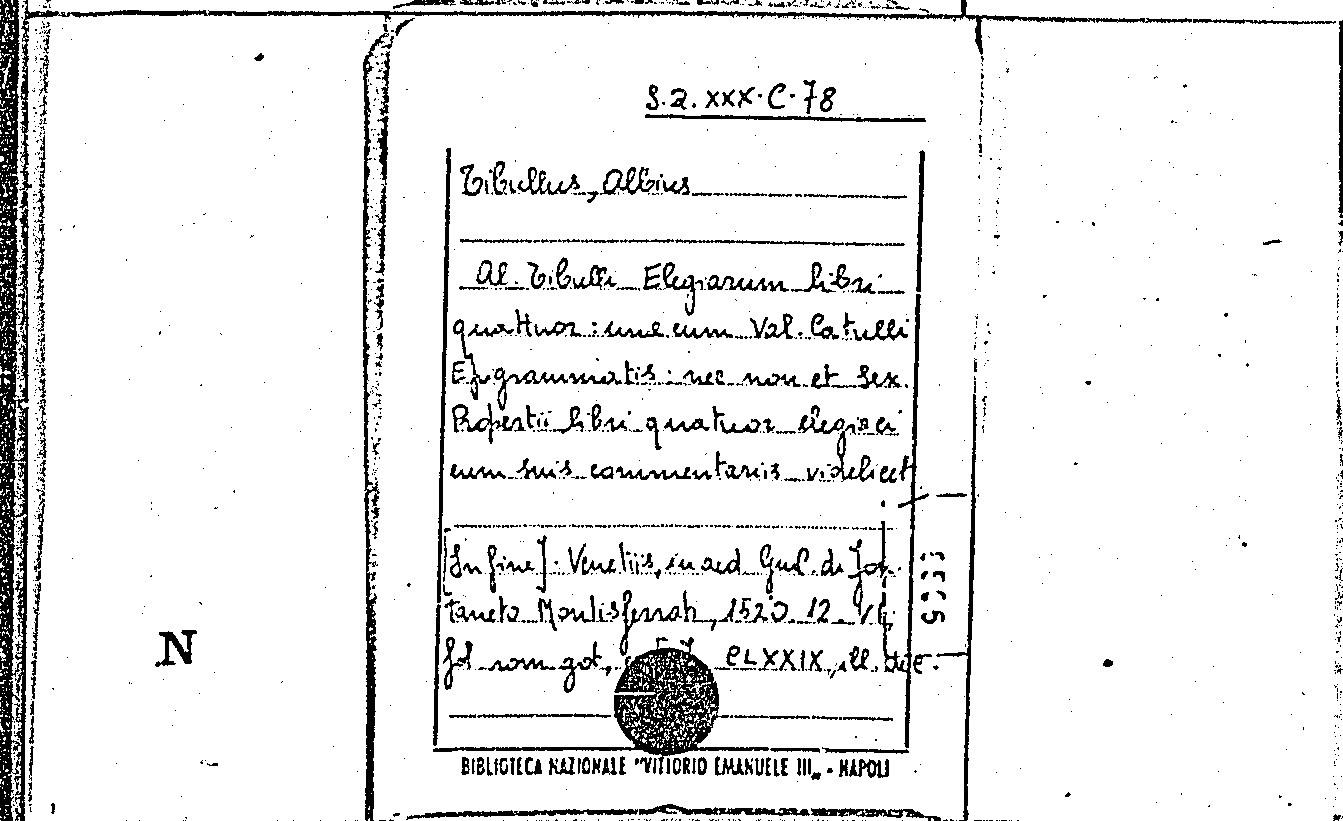 S.Q. XXX.C.78
Tibullus, Albius
Al. Tibulli Elegiarum libri
quattuor: une cum Val. Catulli
Epigrammatis: nec non et Sex.
Propertii libri quatuor elegiaci
cum suis commentariis videlicet
[In fine]. Venetiis, in aed. Gul. de Fon
taneto Montisferrati, 1520. 12.
fol rom got, CLXXIX, ill.
N
BIBLIOTECA NAZIONALE "VITTORIO EMANUELE III„ - NAPOLI